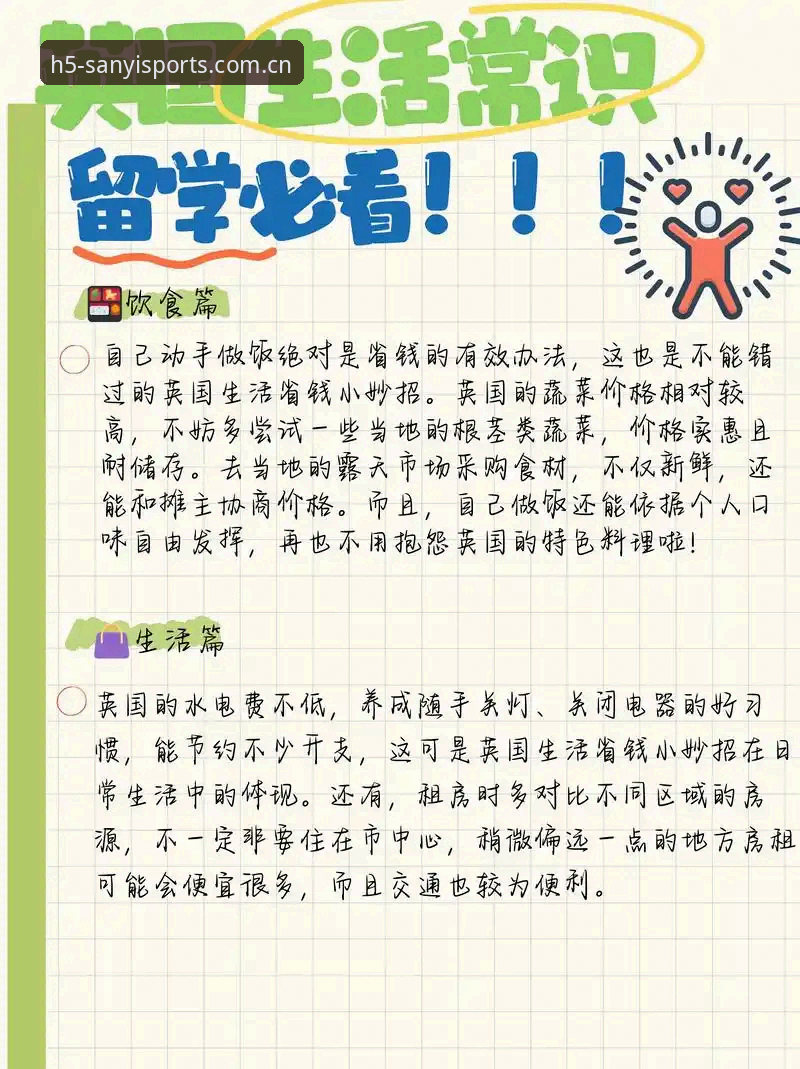 英国生活常识
h5-sanyisports.com.cn
留学必看！！！
饮食篇
自己动手做饭绝对是省钱的有效办法，这也是不能错
过的英国生活省钱小妙招。英国的蔬菜价格相对较
高，不妨多尝试一些当地的根茎类蔬菜，价格实惠且
耐储存。去当地的露天市场采购食材，不仅新鲜，还
能和摊主协商价格。而且，自己做饭还能依据个人口
味自由发挥，再也不用抱怨英国的特色料理啦！
生活篇
英国的水电费不低，养成随手关灯、关闭电器的好习
惯，能节约不少开支，这可是英国生活省钱小妙招在日
常生活中的体现。还有，租房时多对比不同区域的房
源，不一定非要住在市中心，稍微偏远一点的地方房租
可能会便宜很多，而且交通也较为便利。